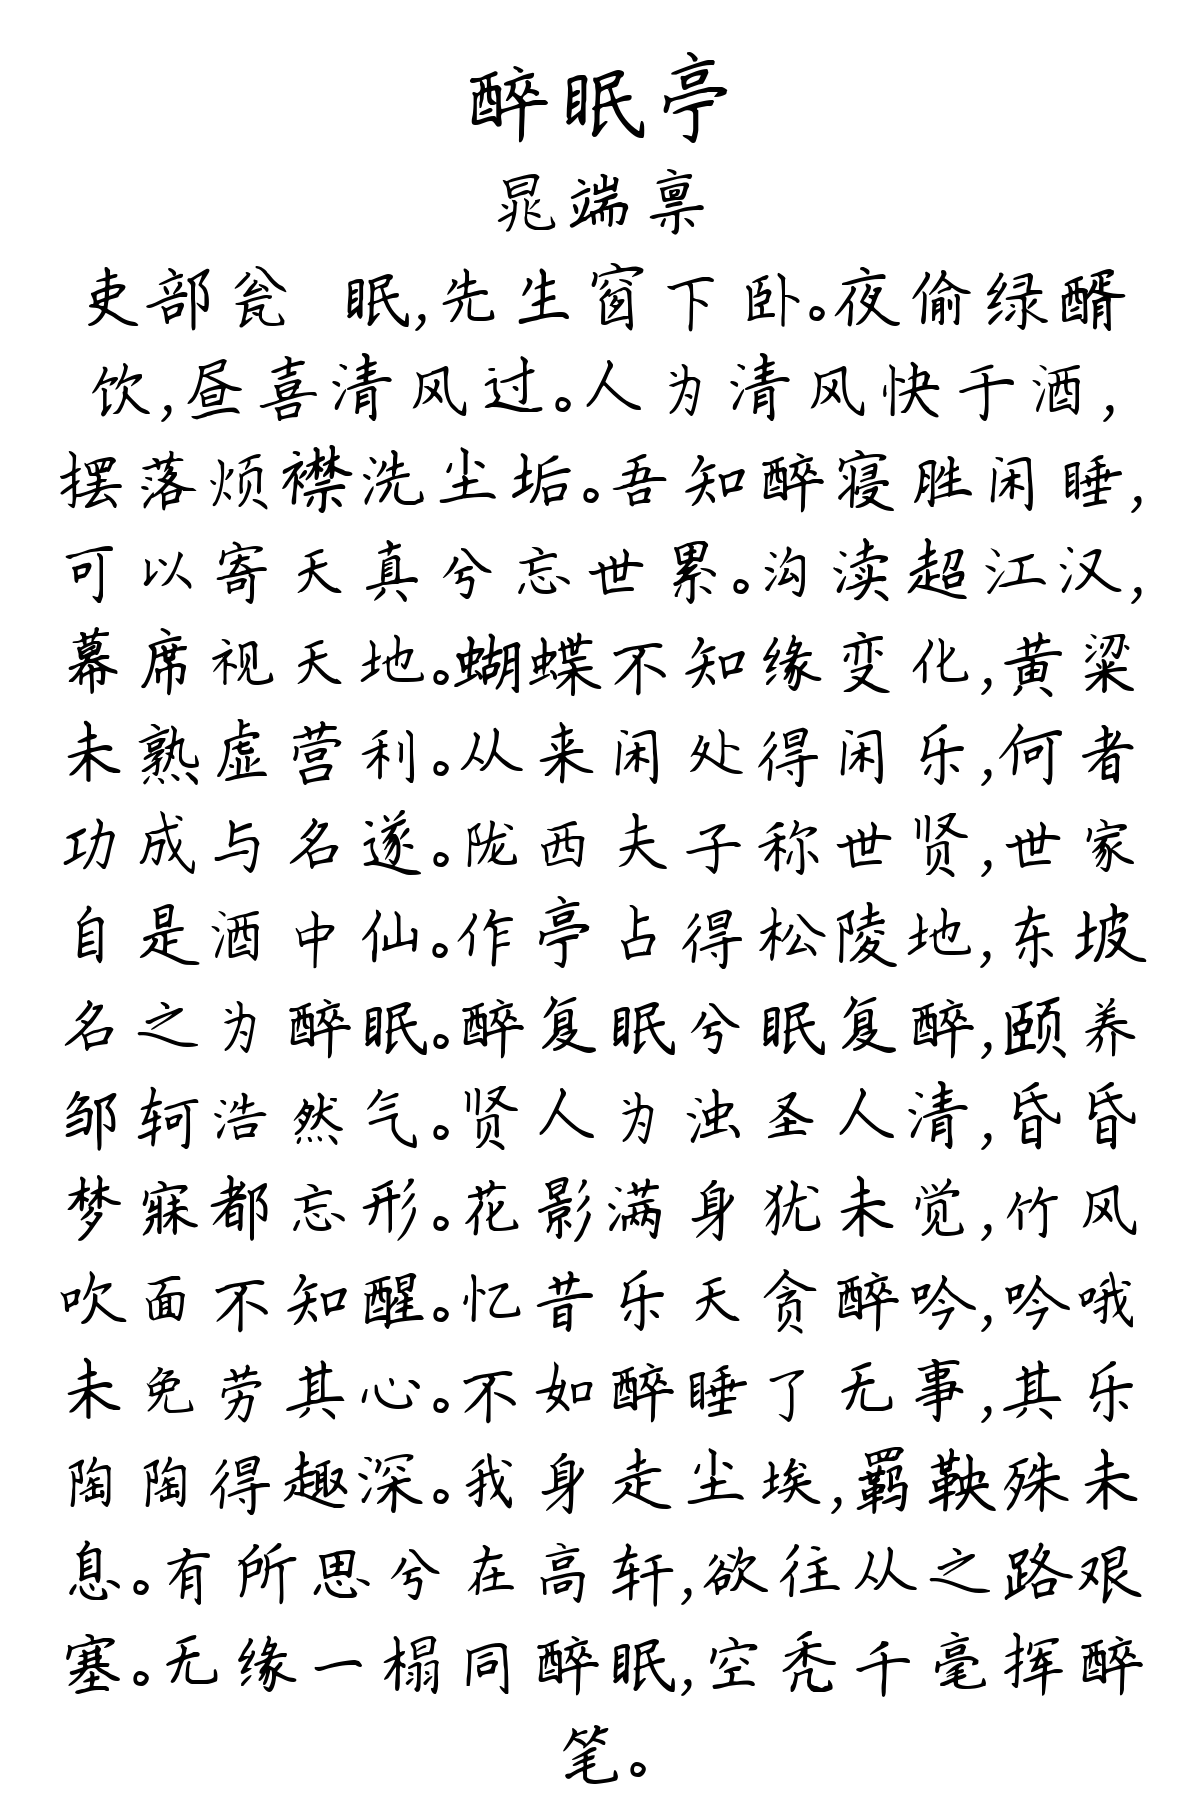 醉眠亭
晁端禀
吏部瓮 眠,先生窗下卧。夜偷绿醑
饮,昼喜清风过。人为清风快于酒,
摆落烦襟洗尘垢。吾知醉寝胜闲睡,
可以寄天真兮忘世累。沟渎超江汉,
幕席视天地。蝴蝶不知缘变化,黄粱
未熟虚营利。从来闲处得闲乐,何者
功成与名遂。陇西夫子称世贤,世家
自是酒中仙。作亭占得松陵地,东坡
名之为醉眠。醉复眠兮眠复醉,颐养
邹轲浩然气。贤人为浊圣人清,昏昏
梦寐都忘形。花影满身犹未觉,竹风
吹面不知醒。忆昔乐天贪醉吟,吟哦
未免劳其心。不如醉睡了无事,其乐
陶陶得趣深。我身走尘埃,羁鞅殊未
息。有所思兮在高轩,欲往从之路艰
塞。无缘一榻同醉眠,空秃千毫挥醉
笔。